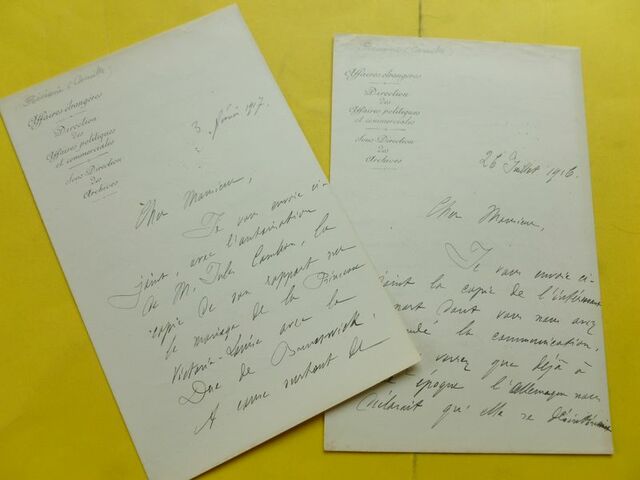 Affaires étrangères
Direction
des
Affaires politiques
et commerciales
Sous Direction
des
Archives
3 février 1917.
Cher Monsieur,
Je vous envoie ci-
joint, avec l'autorisation
de M. Jules Cambon, la
copie de son rapport sur
le mariage de la Princesse
Victoria-Louise avec le
Duc de Brunswick.
A cause surtout de
Affaires étrangères
Direction
des
Affaires politiques
et commerciales
Sous Direction
des
Archives
26 Juillet 1916.
Cher Monsieur,
Je vous envoie ci-
joint la copie de l'intéressant
dont vous nous avez
la communication,
verrez que déjà à
époque l'Allemagne nous
déclarait qu'elle se